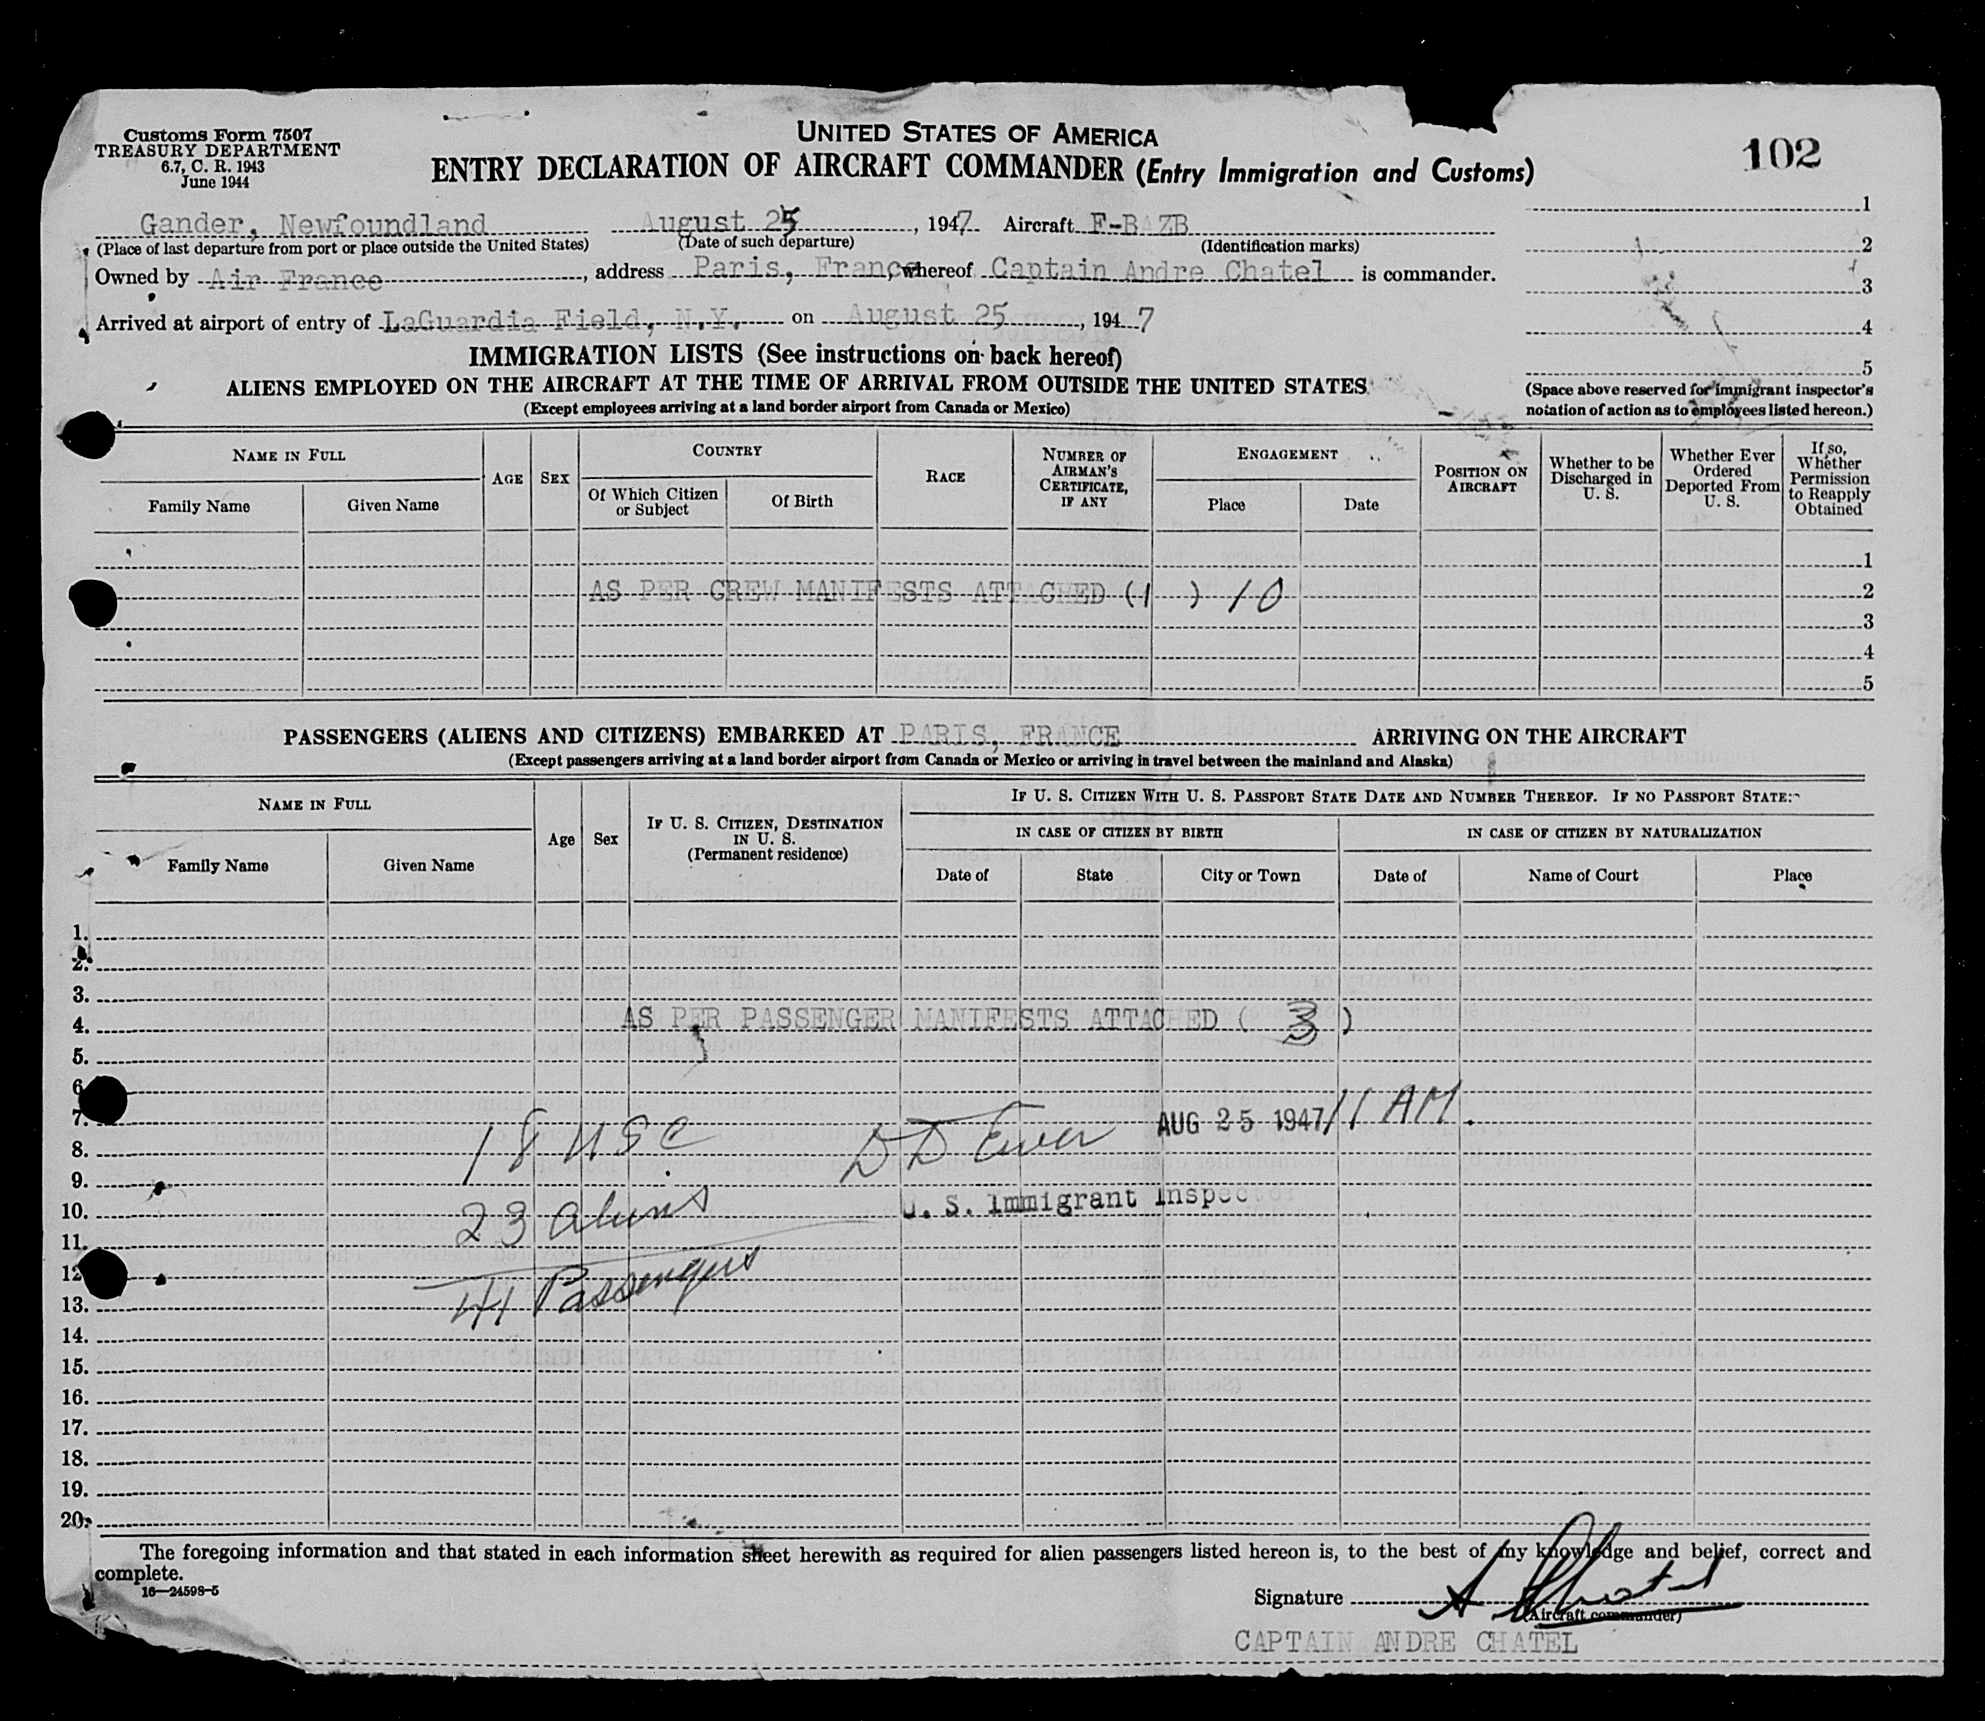 Customs Form 7507
TREASURY DEPARTMENT
6.7, C. R. 1943
June 1944
UNITED STATES OF AMERICA
ENTRY DECLARATION OF AIRCRAFT COMMANDER (Entry Immigration and Customs)
102
Gander, Newfoundland August 25, 1947 Aircraft F-BAZB
(Place of last departure from port or place outside the United States) (Date of such departure) (Identification marks)
Owned by Air France, address Paris, France, whereof Captain Andre Chatel is commander.
Arrived at airport of entry of LaGuardia Field, N.Y. on August 25, 1947
1
2
3
4
5
(Space above reserved for immigrant inspector's
notation of action as to employees listed hereon.)
IMMIGRATION LISTS (See instructions on back hereof)
ALIENS EMPLOYED ON THE AIRCRAFT AT THE TIME OF ARRIVAL FROM OUTSIDE THE UNITED STATES
(Except employees arriving at a land border airport from Canada or Mexico)
NAME IN FULL
Family Name Given Name
AGE SEX
COUNTRY
Of Which Citizen or Subject Of Birth
RACE
NUMBER OF AIRMAN'S CERTIFICATE, IF ANY
ENGAGEMENT
Place Date
POSITION ON AIRCRAFT
Whether to be Discharged in U. S.
Whether Ever Ordered Deported From U. S.
If so, Whether Permission to Reapply Obtained
1
AS PER CREW MANIFESTS ATTACHED (1 ) 10 2
3
4
5
PASSENGERS (ALIENS AND CITIZENS) EMBARKED AT PARIS, FRANCE ARRIVING ON THE AIRCRAFT
(Except passengers arriving at a land border airport from Canada or Mexico or arriving in travel between the mainland and Alaska)
NAME IN FULL
Family Name Given Name
Age Sex
IF U. S. CITIZEN, DESTINATION IN U. S.
(Permanent residence)
IF U. S. CITIZEN WITH U. S. PASSPORT STATE DATE AND NUMBER THEREOF. IF NO PASSPORT STATE:
IN CASE OF CITIZEN BY BIRTH IN CASE OF CITIZEN BY NATURALIZATION
Date of State City or Town Date of Name of Court Place
1.
2.
3.
4. AS PER PASSENGER MANIFESTS ATTACHED ( 3 )
5.
6.
7. AUG 25 1947 11 AM.
8. 18 USC
9.
10. 23 Aliens U. S. Immigrant Inspector
11.
12.
13. 41 Passengers
14.
15.
16.
17.
18.
19.
20.
The foregoing information and that stated in each information sheet herewith as required for alien passengers listed hereon is, to the best of my knowledge and belief, correct and
complete.
16—24598-5
Signature A Chatel
(Aircraft commander)
CAPTAIN ANDRE CHATEL